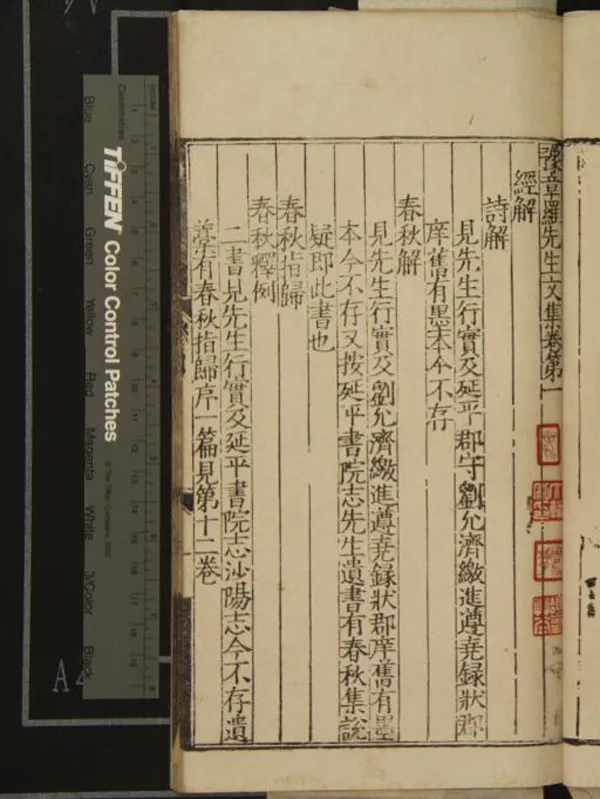 豫章羅先生文集卷第一
經解
詩解
見先生行實及延平郡守劉允濟繳進遵堯録狀郡
庠舊有墨本今不存
春秋解
見先生行實及劉允濟繳進遵堯録狀郡庠舊有墨
本今不存又按延平書院志先生遺書有春秋集說
疑即此書也
春秋指歸
春秋釋例
二書見先生行實及延平書院志沙陽志今不存遺
藁有春秋指歸序一篇見第十二卷
Inches
Centimetres
TIFFEN Color Control Patches
© The Tiffen Company, 2000
Blue
Cyan
Green
Yellow
Red
Magenta
White
3/Color
Black
A4